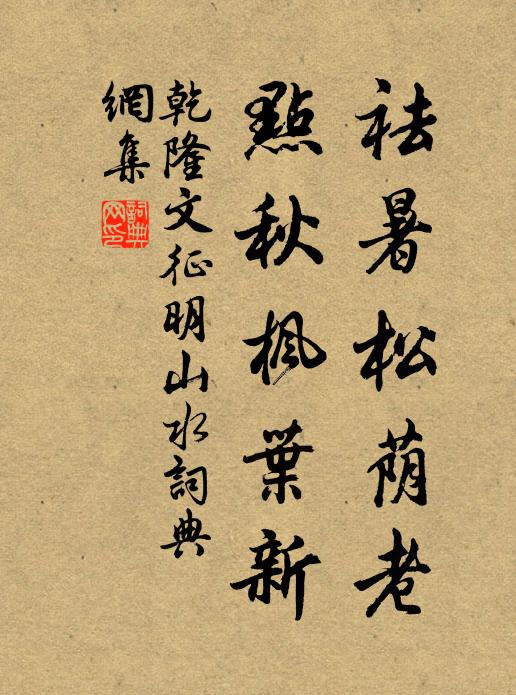 祛暑松荫老
點秋楓葉新
乾隆文征明山水詞典
網集
詞典
网印